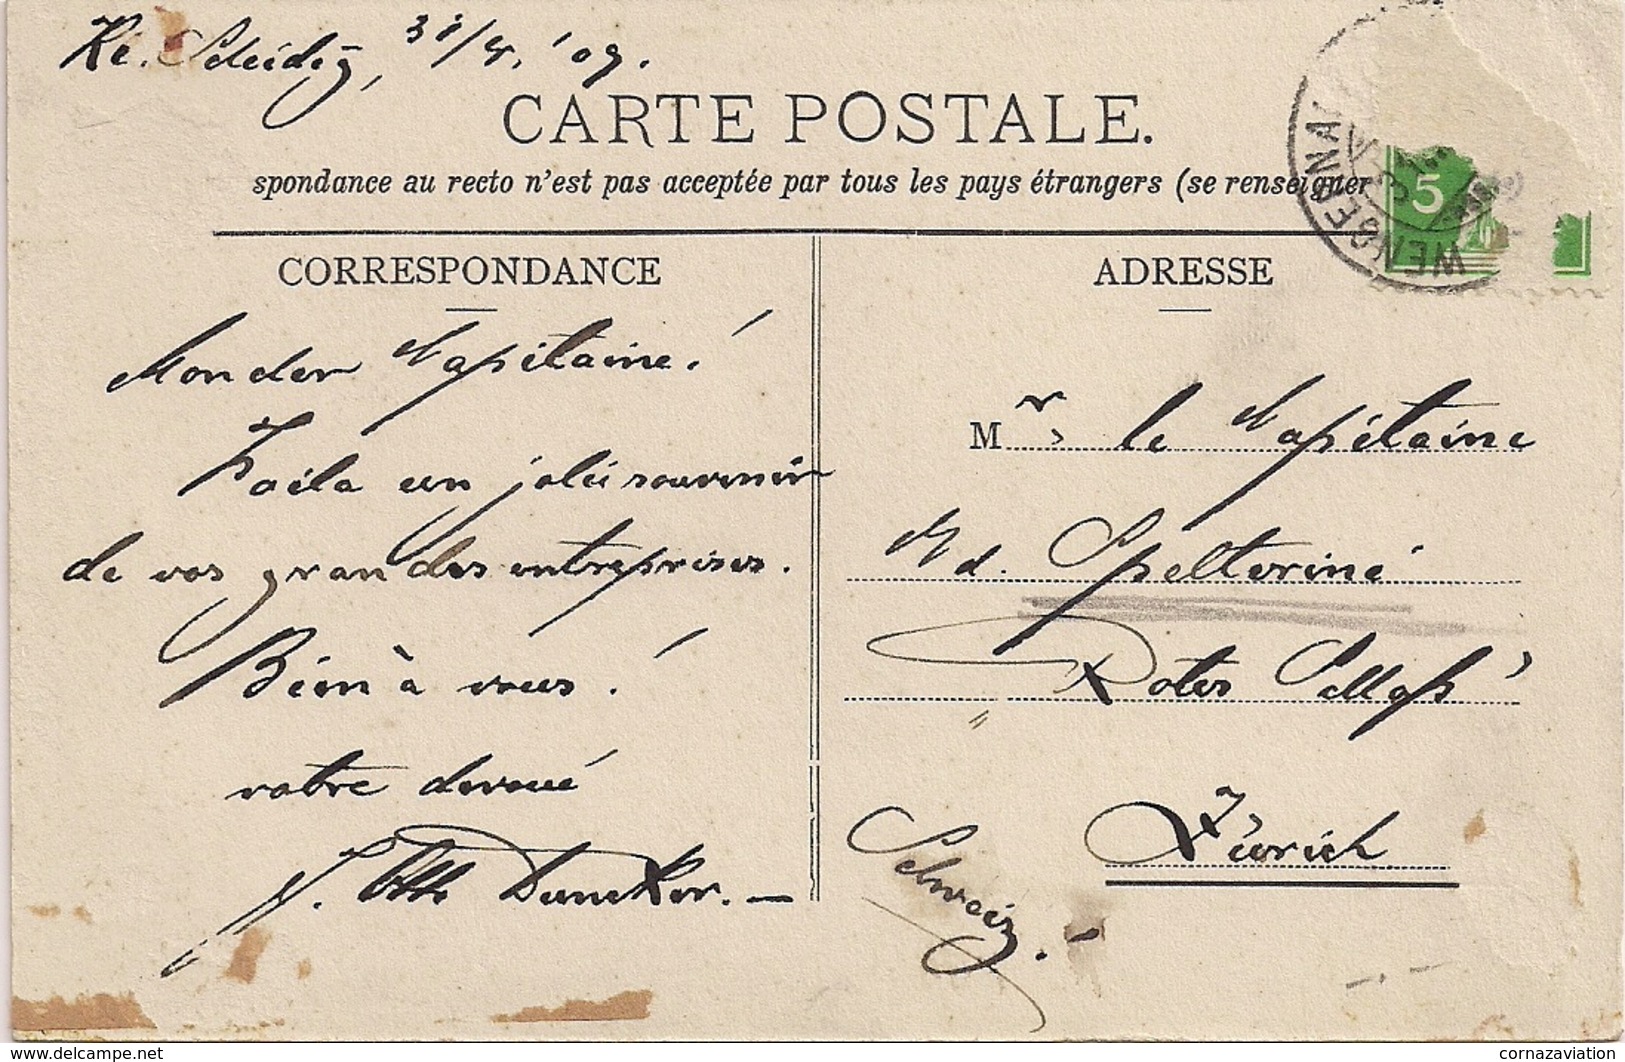 Kl. Scheidegg, 31/8. '09.
CARTE POSTALE.
spondance au recto n'est pas acceptée par tous les pays étrangers (se renseigner
WENGERNAL
5
CORRESPONDANCE
Mon cher Capitaine!
Voila un joli souvenir
de vos grandes entreprises.
Bien à vous!
votre devoué
J. Otto Duncker. —
ADRESSE
Mr le Capitaine
Ed. Spelterini
Rotes Schloss
Zürich
Schweiz.
www.delcampe.net
cornazaviation